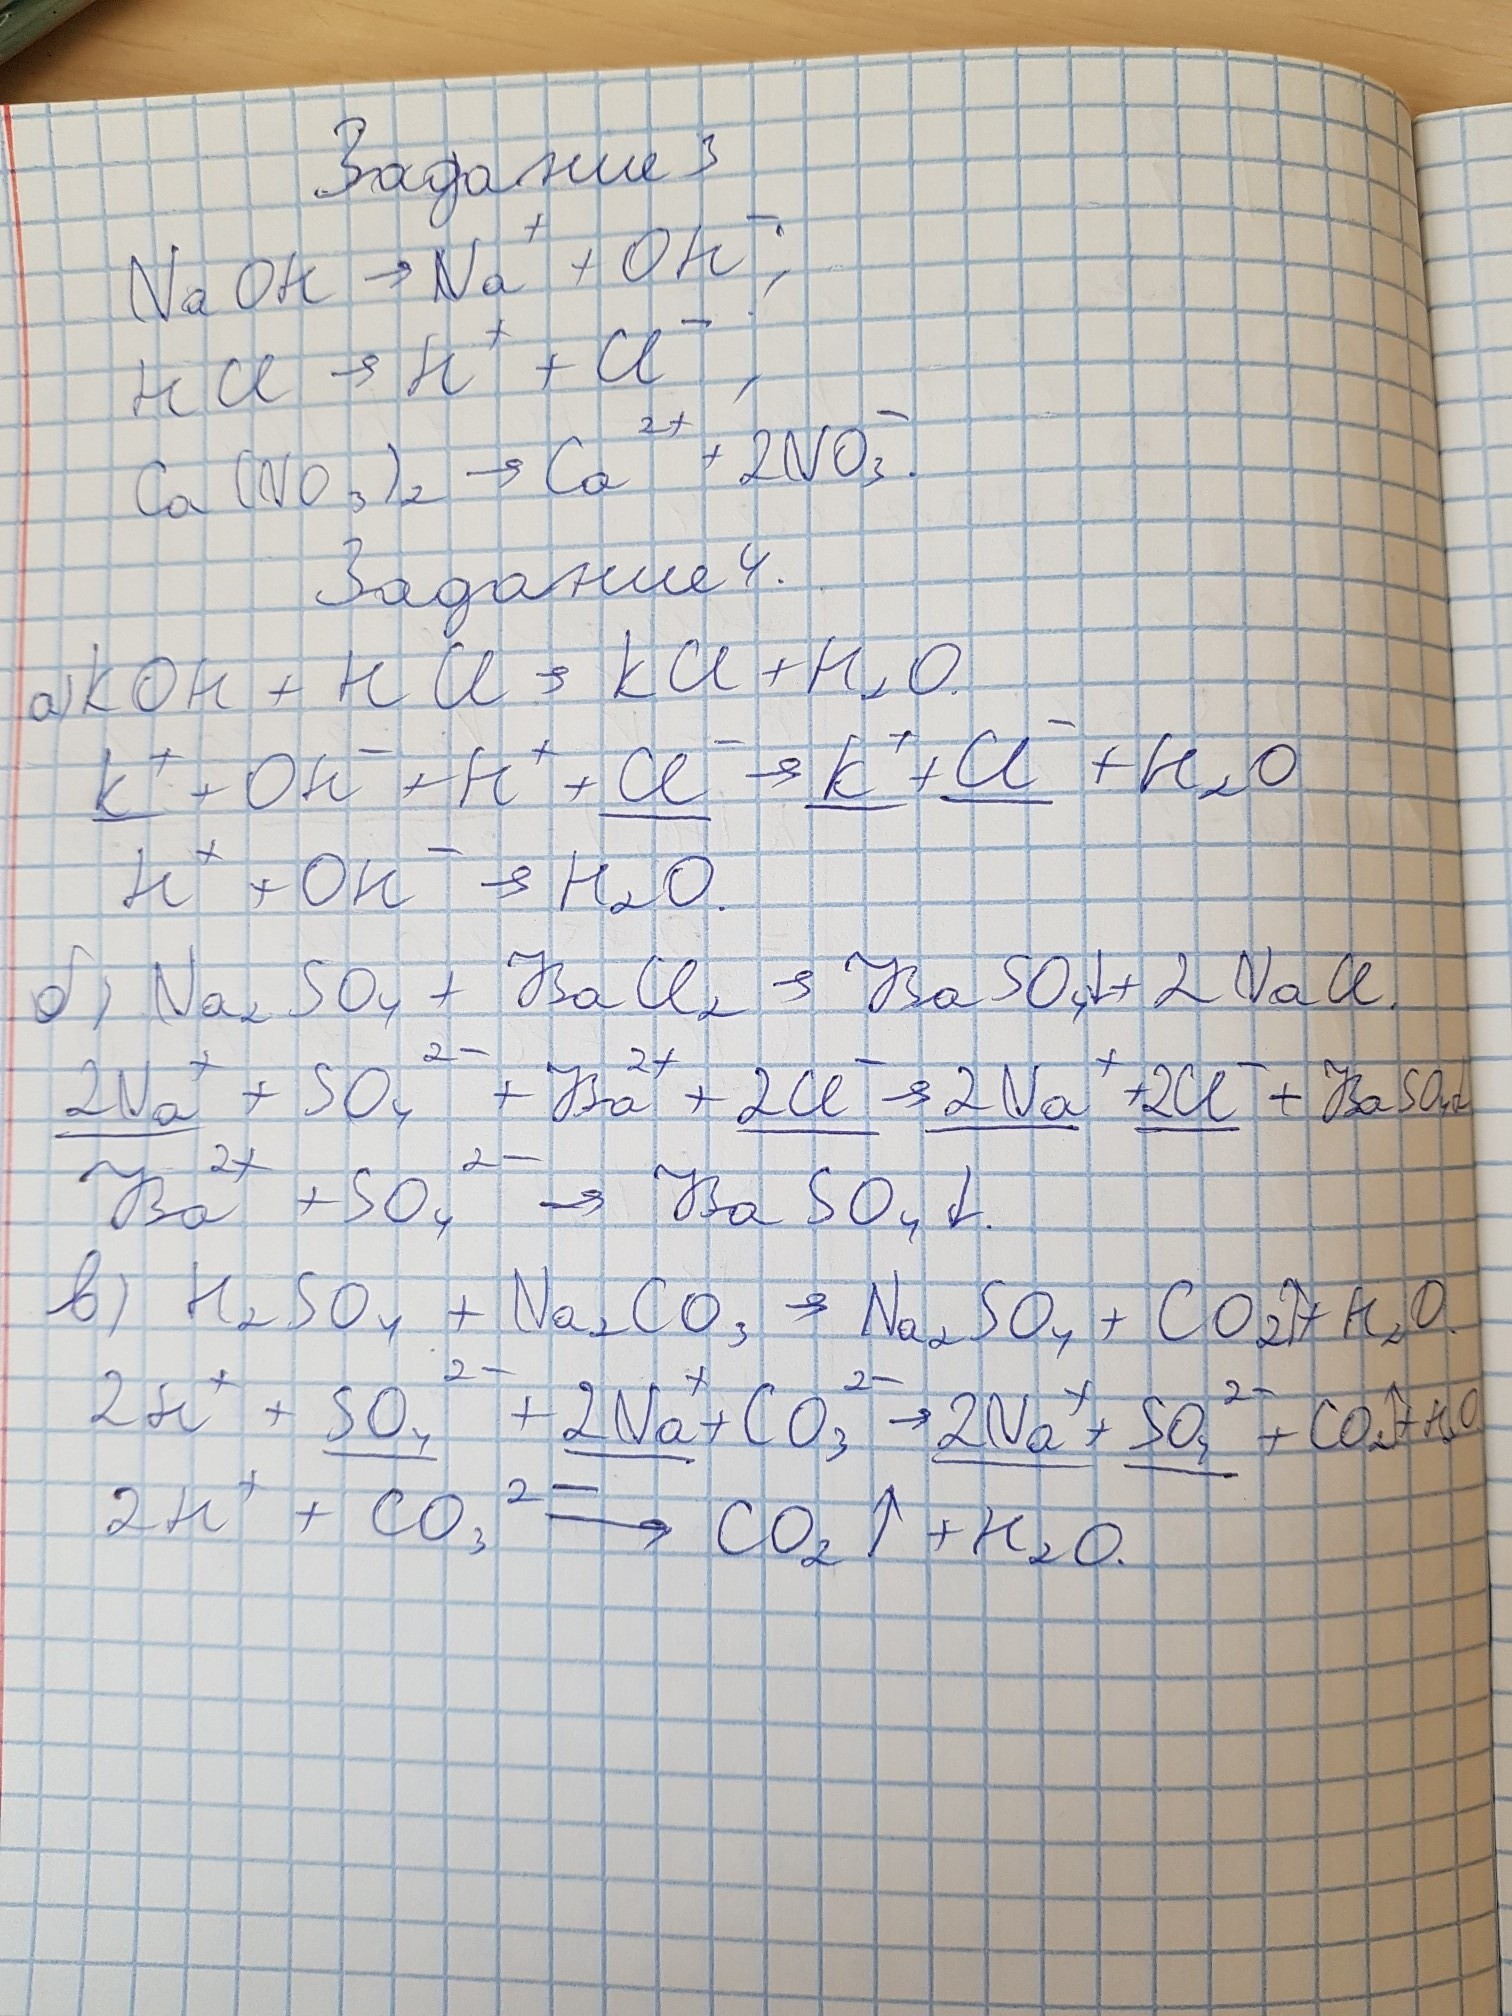 Задание 3
NaOH → Na⁺ + OH⁻;
HCl → H⁺ + Cl⁻,
Ca(NO₃)₂ → Ca²⁺ + 2NO₃⁻.
Задание 4.
а) KOH + HCl → KCl + H₂O.
K⁺ + OH⁻ + H⁺ + Cl⁻ → K⁺ + Cl⁻ + H₂O
H⁺ + OH⁻ → H₂O.
б) Na₂SO₄ + BaCl₂ → BaSO₄↓ + 2NaCl.
2Na⁺ + SO₄²⁻ + Ba²⁺ + 2Cl⁻ → 2Na⁺ + 2Cl⁻ + BaSO₄↓
Ba²⁺ + SO₄²⁻ → BaSO₄↓.
в) H₂SO₄ + Na₂CO₃ → Na₂SO₄ + CO₂↑ + H₂O.
2H⁺ + SO₄²⁻ + 2Na⁺ + CO₃²⁻ → 2Na⁺ + SO₄²⁻ + CO₂↑ + H₂O
2H⁺ + CO₃²⁻ → CO₂↑ + H₂O.